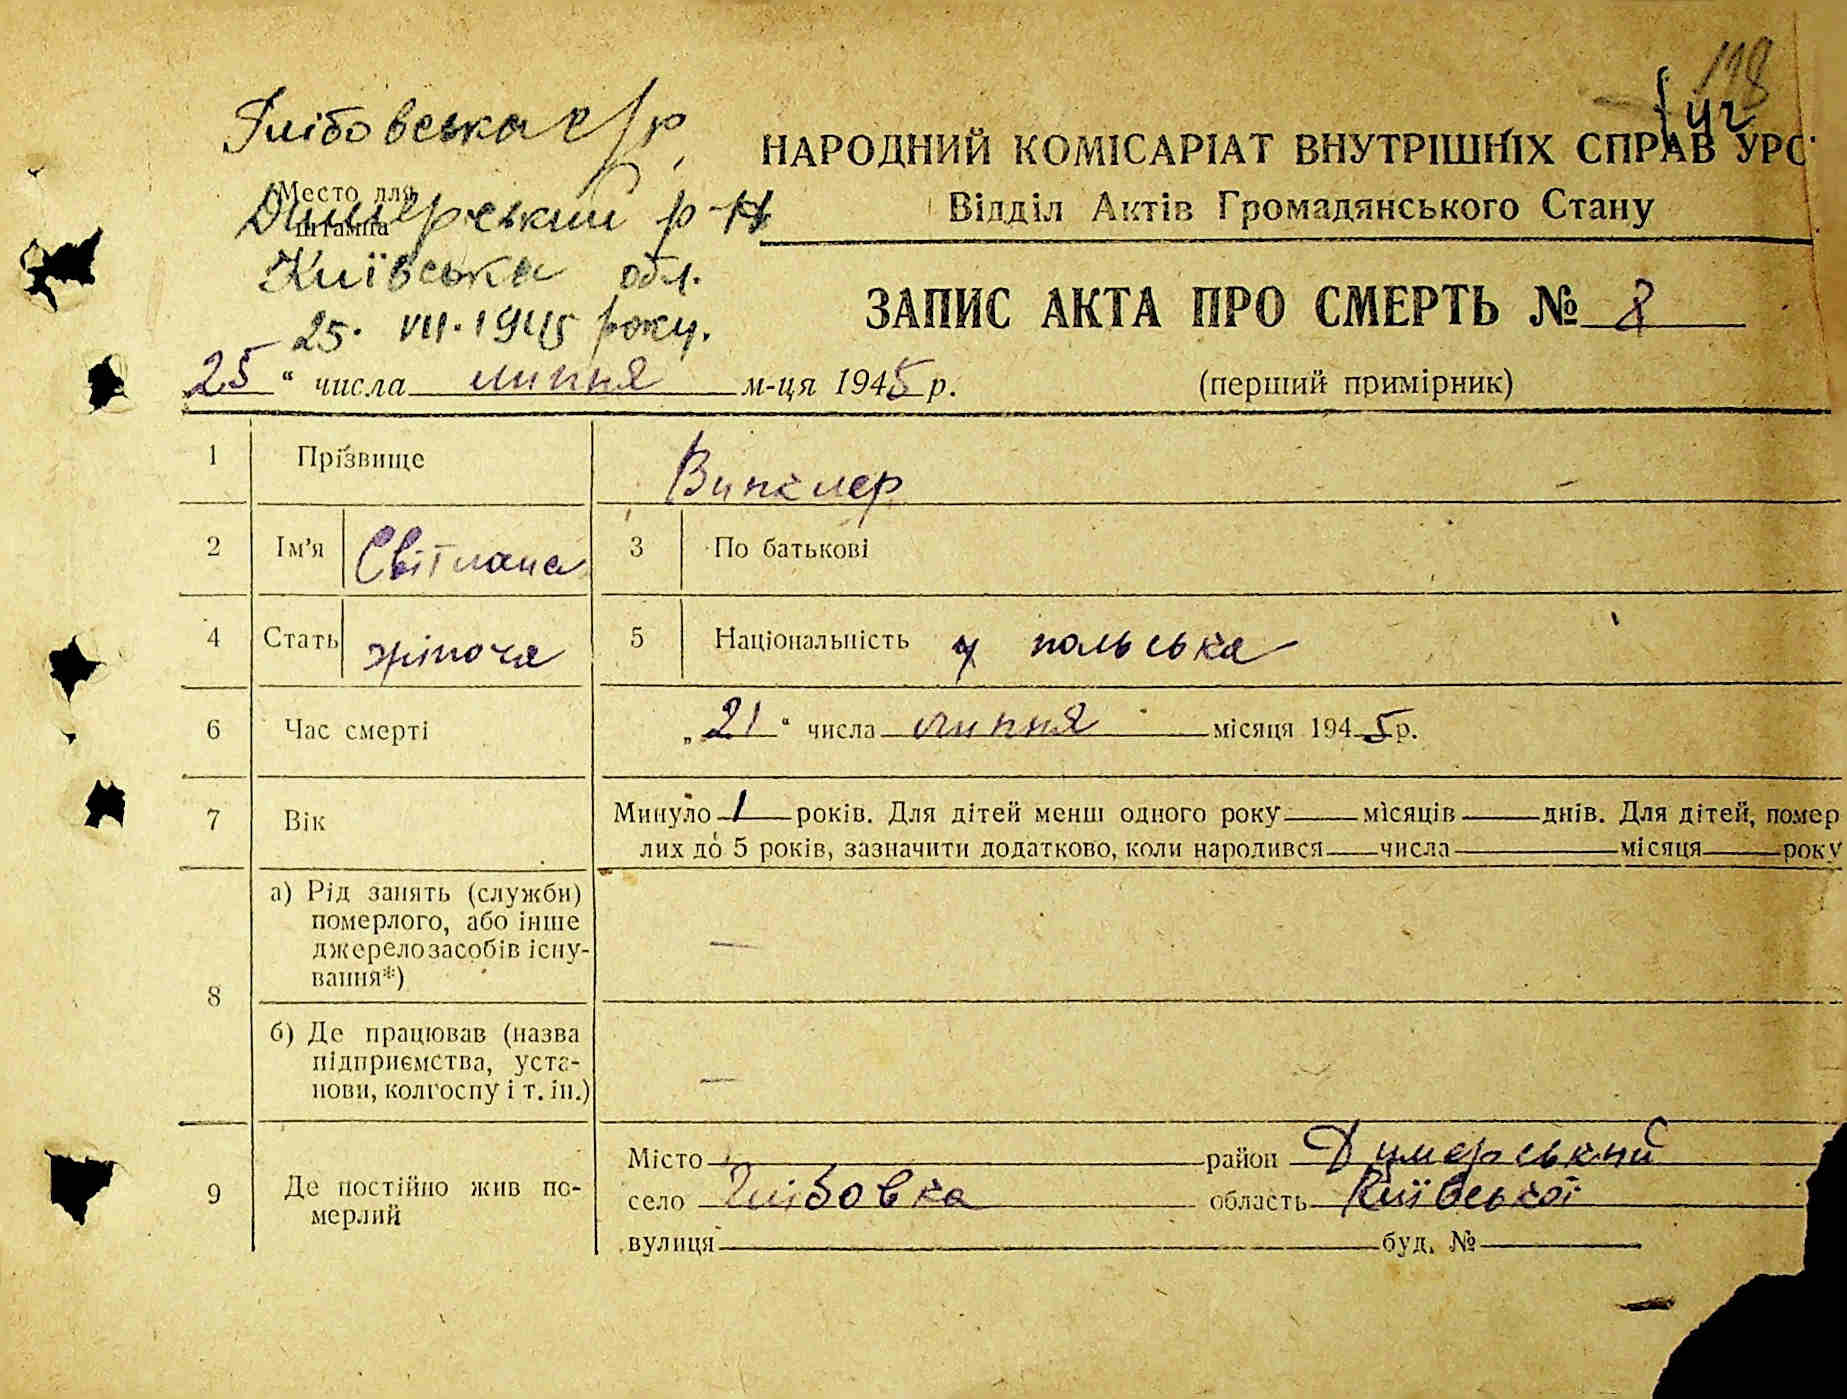 118
Глібовська с/р.
НАРОДНИЙ КОМІСАРІАТ ВНУТРІШНІХ СПРАВ УРС
Место для
штампа
Димерський р-н
Відділ Актів Громадянського Стану
Київська обл.
25. VII. 1945 року.
ЗАПИС АКТА ПРО СМЕРТЬ № 8
25 " числа липня м-ця 1945 р.
(перший примірник)
1 Прізвище Винклер
2 Ім'я Світлана 3 По батькові
4 Стать жіноча 5 Національність польська
6 Час смерті „21" числа липня місяця 1945 р.
7 Вік Минуло 1 років. Для дітей менш одного року місяців днів. Для дітей, помер
лих до 5 років, зазначити додатково, коли народився числа місяця року
8 а) Рід занять (служби)
померлого, або інше
джерело засобів існу-
вання*) —
б) Де працював (назва
підприємства, уста-
нови, колгоспу і т. ін.) —
9 Де постійно жив по-
мерлий
Місто район Димерський
село Глібовка область Київської
вулиця буд. №